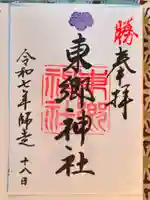 勝
奉拝
東郷神社
東郷神社
令和七年師走十八日